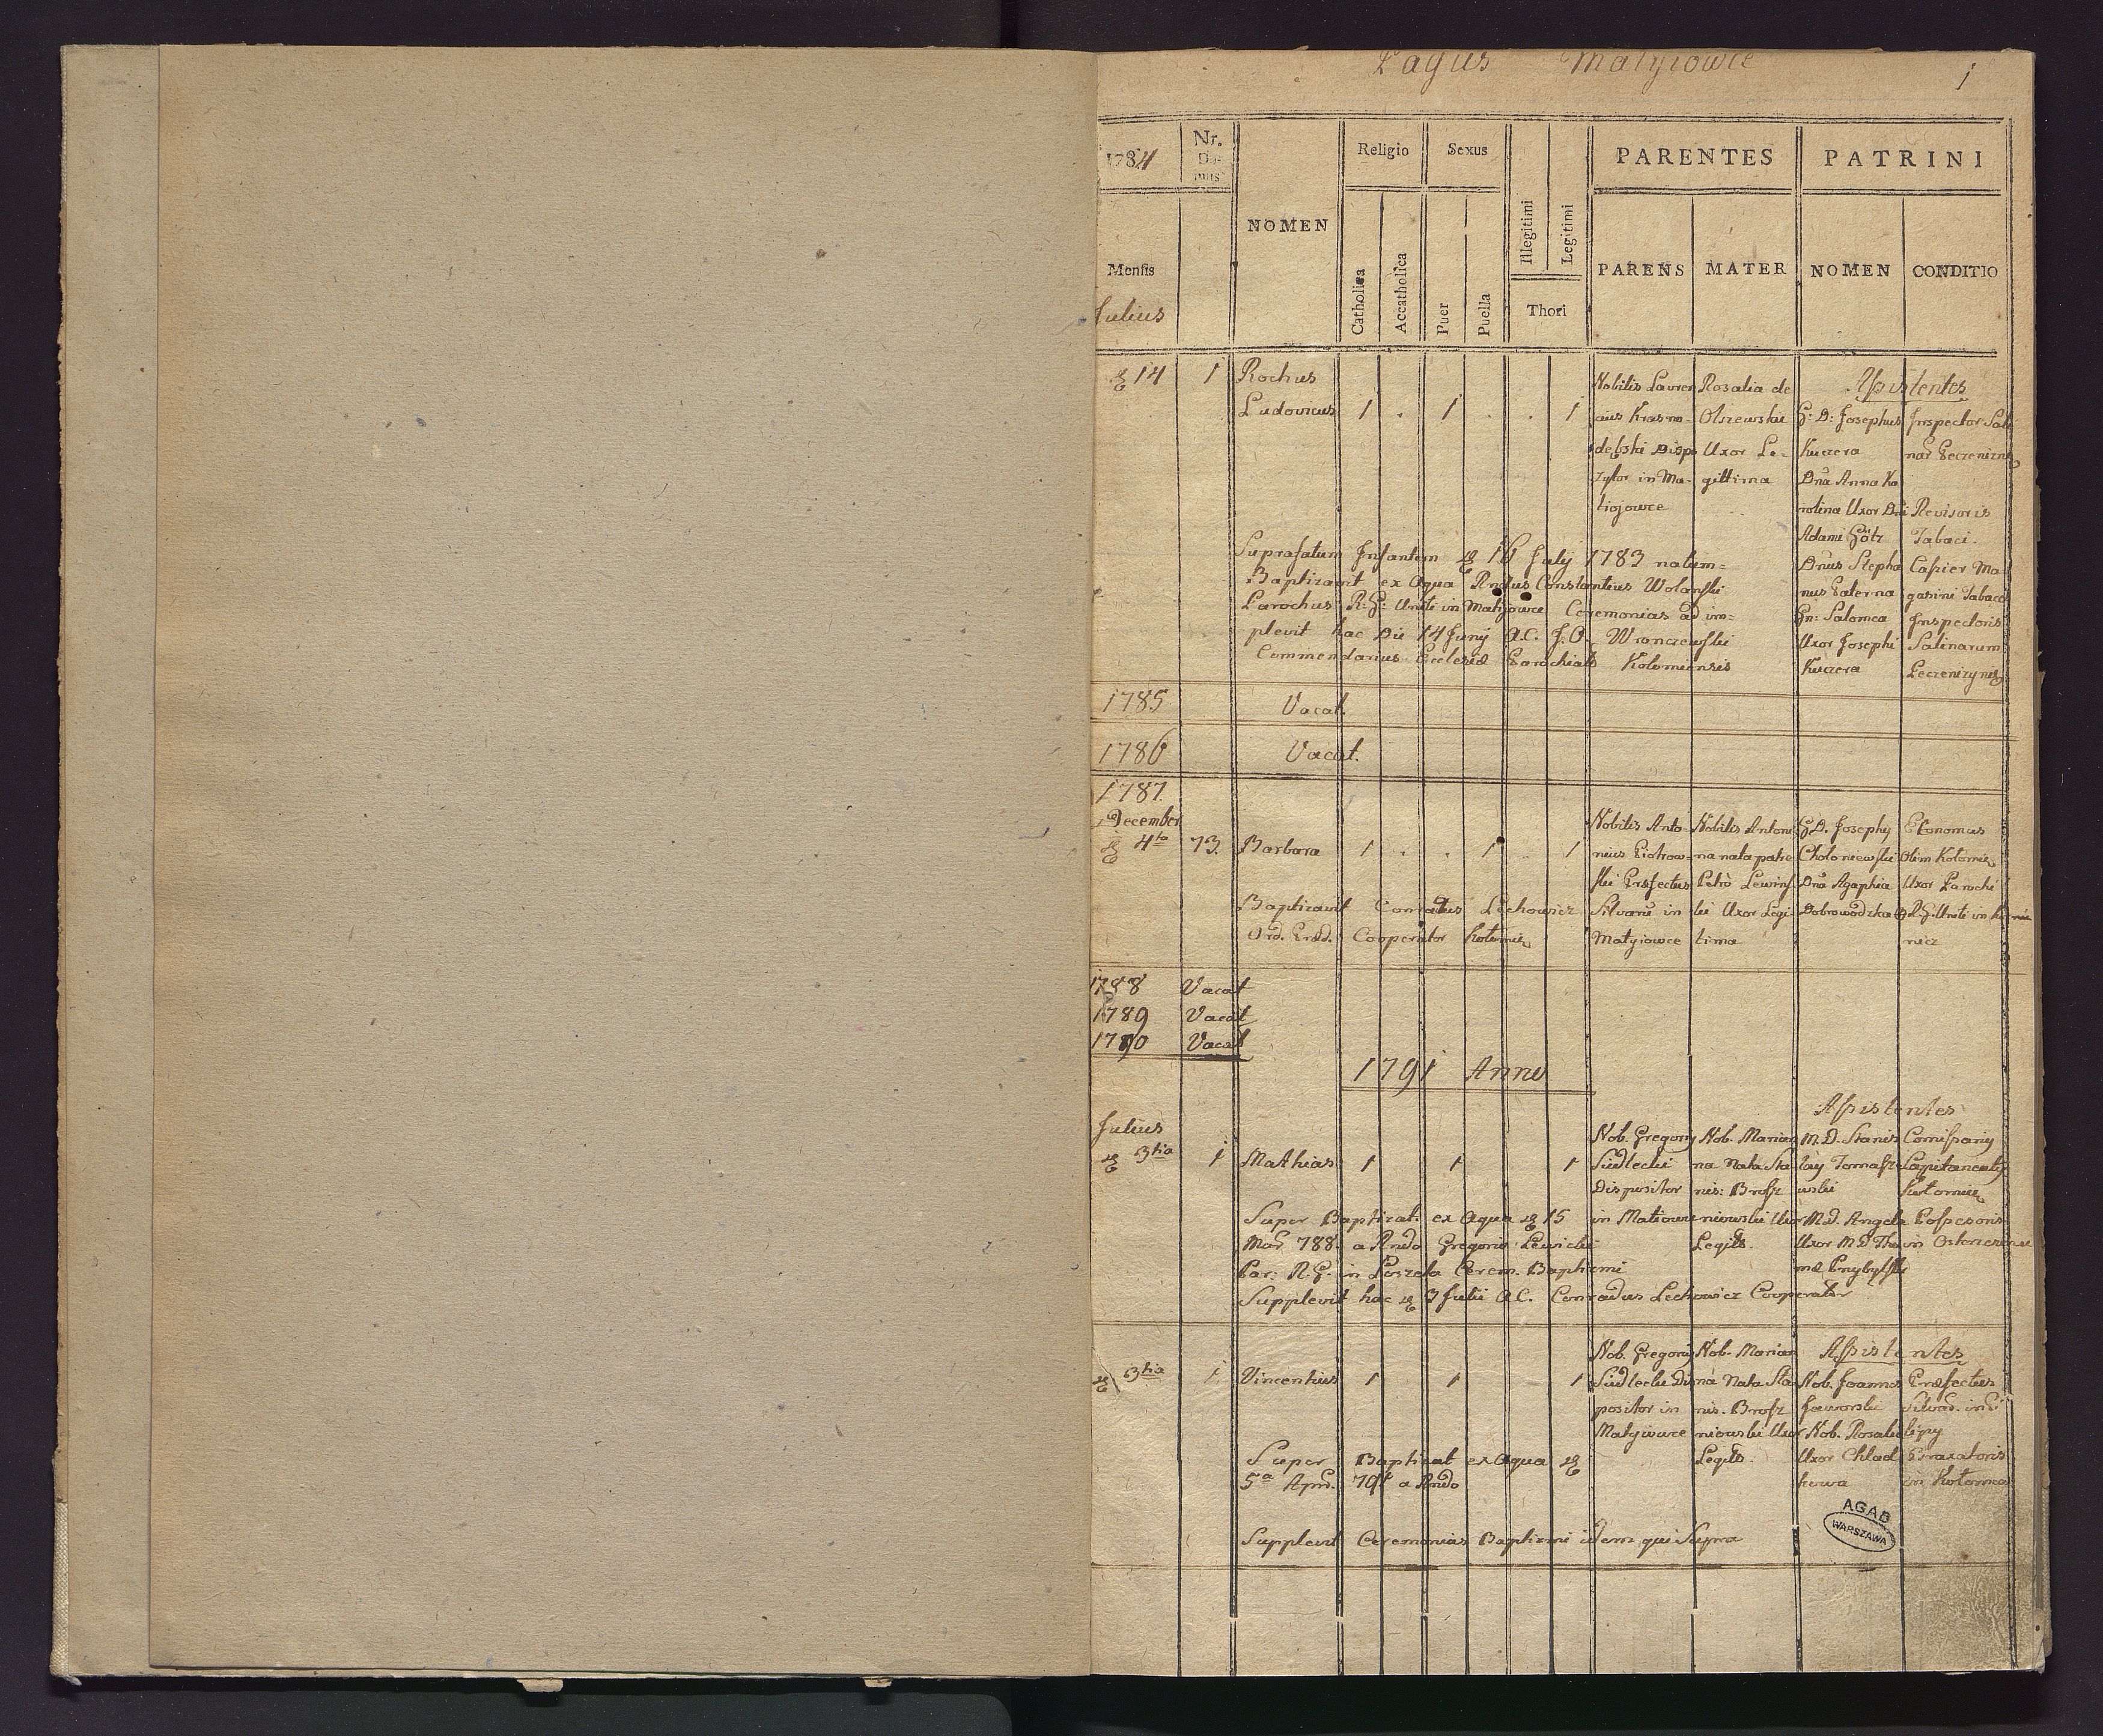 Pagus Matyiowce
1
1784
Nr. Domus
NOMEN
Religio
Sexus
PARENTES
PATRINI
Mensis
Julius
Catholica
Accatholica
Puer
Puella
Illegitimi
Legitimi
Thori
PARENS
MATER
NOMEN
CONDITIO
14 1 Rochus
Ludovicus 1 . 1 . . 1
Nobilis Lauren
cius Krasno-
debski Dispo
zytor in Ma-
tiojowce
Rosalia de
Olszewskie
Uxor Le-
gittima
Assistentes
G: D: Josephus
Kuczera
Dna Anna Ka
rolina Uxor Dni
Adami Götz
Dnus Stepha
nus Paterna
Gn: Salomea
Uxor Josephi
Kuczera
Inspector Sali
nar Peczenizin
Revisoris
Tabaci.
Cassier Ma
gasini Tabaco
Inspectoris
Salinarum
Peczenizynis
Suprafatum Infantem 16 July 1783 natum=
Baptizavit ex Aqua Rndus Constantius Wolanski
Parochus R: G: Uniti in Matyjowce Ceremonias ad im-
plevit hac Die 14 Juny A.C. J. O. Wronczewski
Commendarius Ecclesiæ Parochialis Kolomiensis
1785 Vacat.
1786 Vacat.
1787.
December
4to 73. Barbara 1 . . 1 . 1
Nobilis Anto-
nius Piotrow-
ski Præfectus
Silvaru in
Matyiowce
Nobilis Antoni
na nata patre
Petro Lewins
ki Uxor Legi
tima
G.D. Josephy
Choloniewski
Dna Agaphia
Dobrowodzka
Economus
Olim Kolomie
Uxor Parochi
R.G. Uniti in
nicz
Baptizavit Conradus Lechowicz
Ord. Præd. Cooperator Kolomie
1788 Vacat
1789 Vacat
1790 Vacat
1791 Anno
Julius
3tia 1 Mathias 1 1 1
Nob. Gregory
Siedlecki
Dispositor
in Matiowce
Nob. Marian
na Nata Sta
nis: Brosz
niowski Uxor
Legits.
Assistentes
M. D. Stanis
lay Tomasze
wski
M.D. Angela
Uxor M D Tho
mæ Przybylski
Comissary
Capitaneaty
Kolomie
Possesoris
in
Super Baptizat. ex Aqua 15
Mar. 788. a Rndo Gregorio Lewicki
Par: R. G. in Loszeta Cerem. Baptismi
Supplevit hac 3 Julii A.C. Conradus Lechowicz Cooperator
3tia 1. Vincentius 1 1 1
Nob. Gregory
Siedlecki Dis
positor in
Matyiowce
Nob. Marian
na Nata Sta
nis. Brosz
niowski Uxor
Legits.
Assistentes
Nob. Joannes
Jaworski
Nob. Rosalia
Uxor Chlad
kowa
Præfectus
Silvar. in
lipy
Braxatoris
in Kolomea
Super Baptizat ex Aqua
5a Apri. 791 a Rndo
Supplevit Ceremonias Baptismi idem qui Supra
AGAD
WARSZAWA